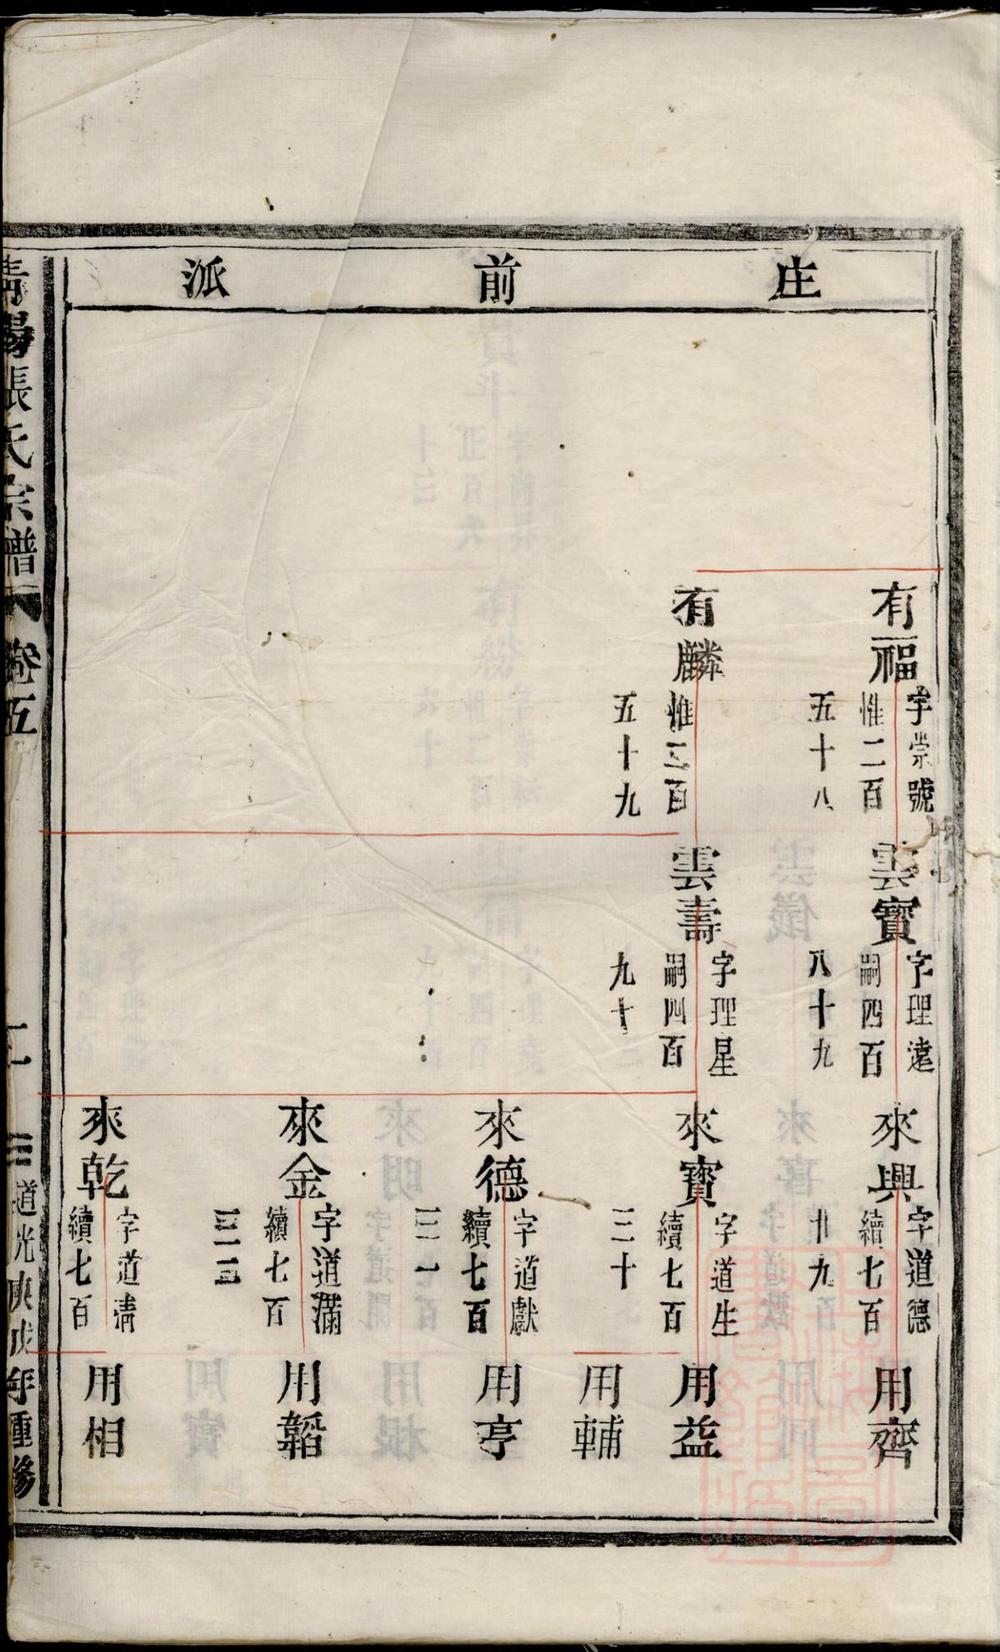 庄前派
有福
字崇號
惟二百
五十八
有麟
惟二百
五十九
雲寳
字理遠
嗣四百
八十九
雲壽
字理星
嗣四百
九十
來興
字道德
續七百
廿九
來寳
字道生
續七百
三十
來德
字道獻
續七百
三一
來金
字道滿
續七百
來乾
字道清
續七百
用齊
用益
用輔
用亨
用韜
用相
清陽張氏宗譜
卷五
道光庚戌年重修